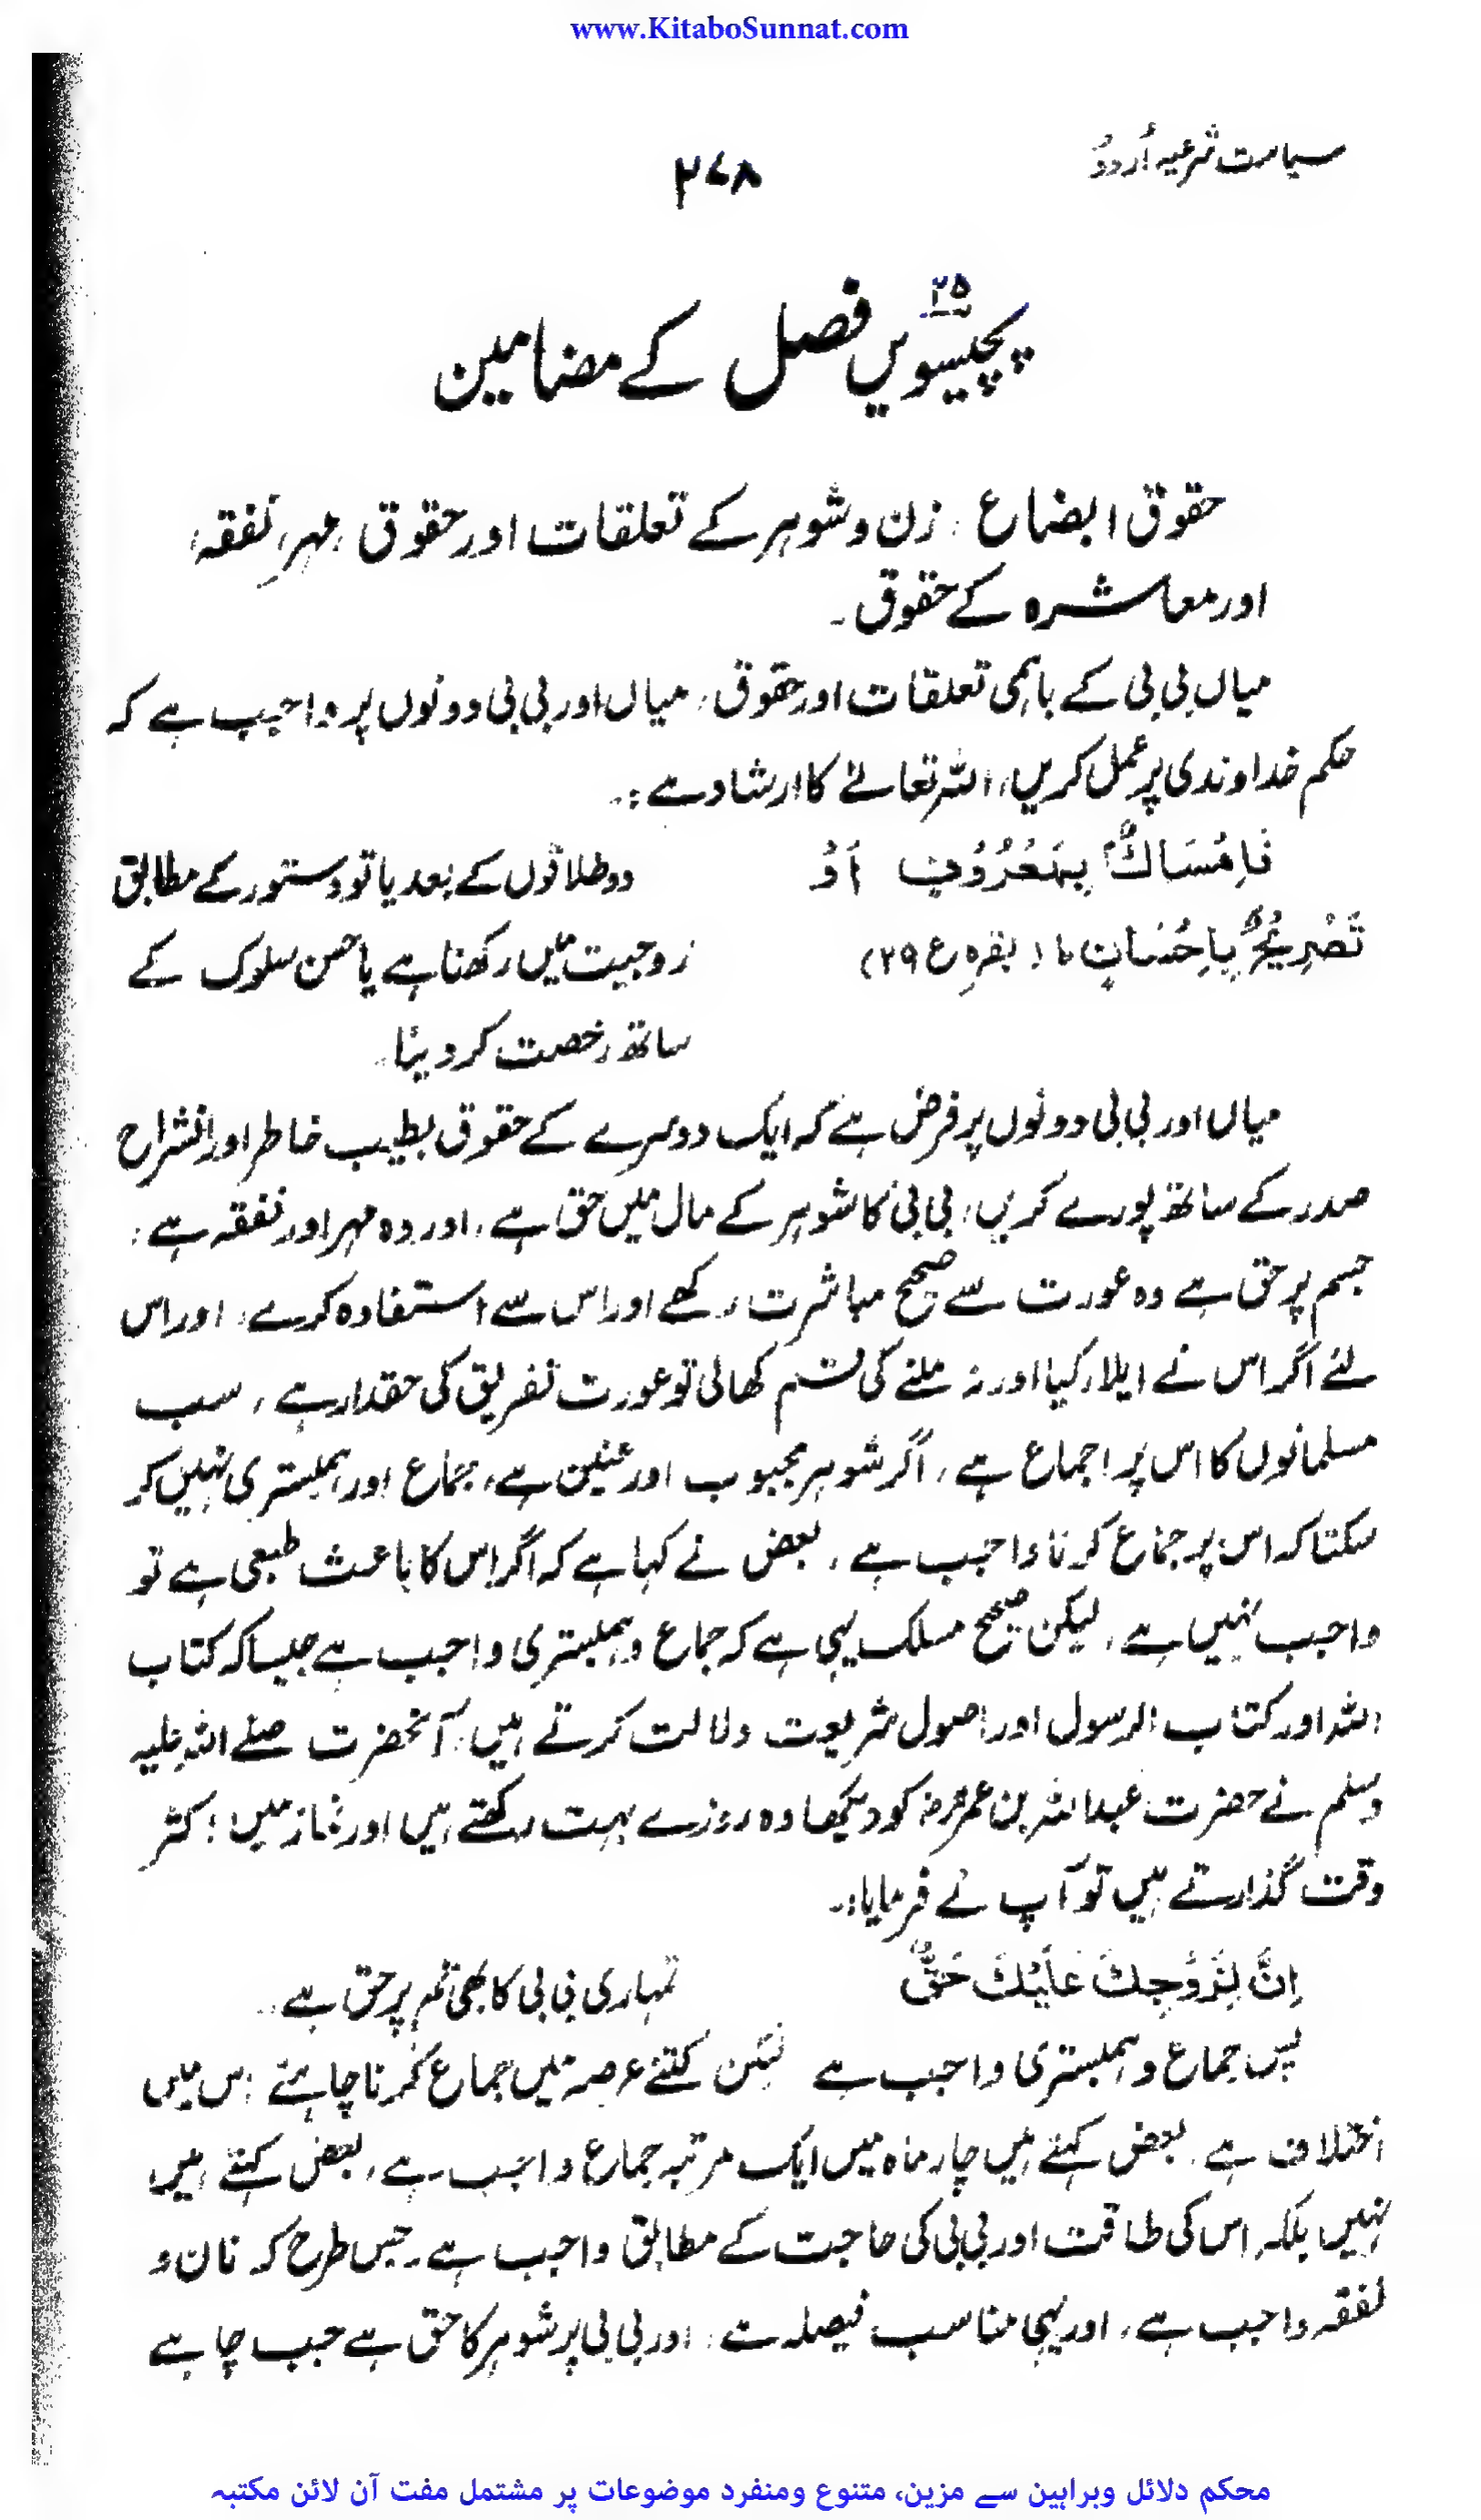 www.KitaboSunnat.com
سیاست شرعیہ اُردو
۲۷۸
۲۵
پچیسویں فصل کے مضامین
حقوق ابضاع، زن و شوہر کے تعلقات اور حقوق، مہر، نفقہ،
اور معاشرہ کے حقوق۔
میاں بی بی کے باہمی تعلقات اور حقوق، میاں اور بی بی دونوں پر واجب ہے کہ
حکم خداوندی پر عمل کریں، اللہ تعالےٰ کا ارشاد ہے :۔
فَاِمْسَاكٌ بِمَعْرُوْفٍ اَوْ
دو طلاقوں کے بعد یا تو دستور کے مطابق
تَصْرِيْحٌ بِاِحْسَانٍ ط (بقرہ ع ۲۹)
زوجیت میں رکھنا ہے یا حسن سلوک کے
ساتھ رخصت کر دینا۔
میاں اور بی بی دونوں پر فرض ہے کہ ایک دوسرے کے حقوق بطیب خاطر اور انشراح
صدر کے ساتھ پورے کریں، بی بی کا شوہر کے مال میں حق ہے، اور وہ مہر اور نفقہ ہے،
جسم پر حق ہے وہ عورت سے صحیح مباشرت رکھے اور اس سے استفادہ کرے، اور اس
لئے اگر اس نے ایلاء کیا اور نہ ملنے کی قسم کھالی تو عورت تفریق کی حقدار ہے، سب
مسلمانوں کا اس پر اجماع ہے، اگر شوہر مجبوب اور عنین ہے، جماع اور ہمبستری نہیں کر
سکتا کہ اس پر جماع کرنا واجب ہے، بعض نے کہا ہے کہ اگر اس کا باعث طبعی ہے تو
واجب نہیں ہے، لیکن صحیح مسلک یہی ہے کہ جماع و ہمبستری واجب ہے جیسا کہ کتاب
اللہ اور کتاب الرسول اور اصول شریعت دلالت کرتے ہیں، آنحضرت صلے اللہ علیہ
وسلم نے حضرت عبداللہ بن عمرؓ کو دیکھا وہ روزے بہت رکھتے ہیں اور نماز میں اکثر
وقت گذارتے ہیں تو آپ نے فرمایا:۔
اِنَّ لِزَوْجِكَ عَلَيْكَ حَقٌّ
تمہاری بی بی کا بھی تم پر حق ہے۔
پس جماع و ہمبستری واجب ہے لیکن کتنے عرصہ میں جماع کرنا چاہئے اس میں
اختلاف ہے، بعض کہتے ہیں چار ماہ میں ایک مرتبہ جماع واجب ہے، بعض کہتے ہیں
نہیں بلکہ اس کی طاقت اور بی بی کی حاجت کے مطابق واجب ہے۔ جس طرح کہ نان و
نفقہ واجب ہے، اور یہی مناسب فیصلہ ہے، اور بی بی پر شوہر کا حق ہے جب چاہے
محکم دلائل وبراہین سے مزین، متنوع ومنفرد موضوعات پر مشتمل مفت آن لائن مکتبہ